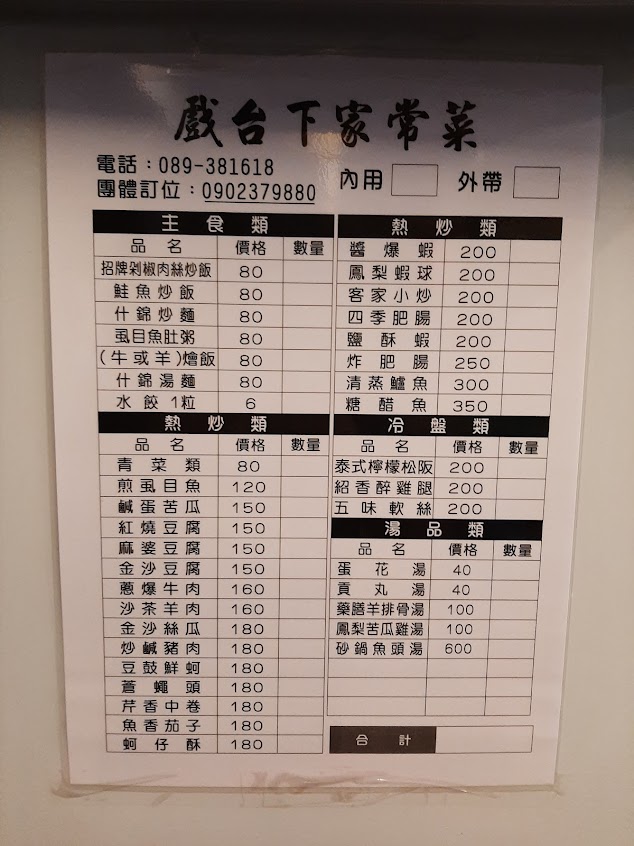 戲台下家常菜
電話：089-381618
團體訂位：0902379880
內用
外帶
主食類
品名 價格 數量
招牌剁椒肉絲炒飯 80
鮭魚炒飯 80
什錦炒麵 80
虱目魚肚粥 80
(牛或羊)燴飯 80
什錦湯麵 80
水餃1粒 6
熱炒類
品名 價格 數量
青菜類 80
煎虱目魚 120
鹹蛋苦瓜 150
紅燒豆腐 150
麻婆豆腐 150
金沙豆腐 150
蔥爆牛肉 160
沙茶羊肉 160
金沙絲瓜 180
炒鹹豬肉 180
豆鼓鮮蚵 180
蒼蠅頭 180
芹香中卷 180
魚香茄子 180
蚵仔酥 180
熱炒類
醬爆蝦 200
鳳梨蝦球 200
客家小炒 200
四季肥腸 200
鹽酥蝦 200
炸肥腸 250
清蒸鱸魚 300
糖醋魚 350
冷盤類
品名 價格 數量
泰式檸檬松阪 200
紹香醉雞腿 200
五味軟絲 200
湯品類
品名 價格 數量
蛋花湯 40
貢丸湯 40
藥膳羊排骨湯 100
鳳梨苦瓜雞湯 100
砂鍋魚頭湯 600
合計